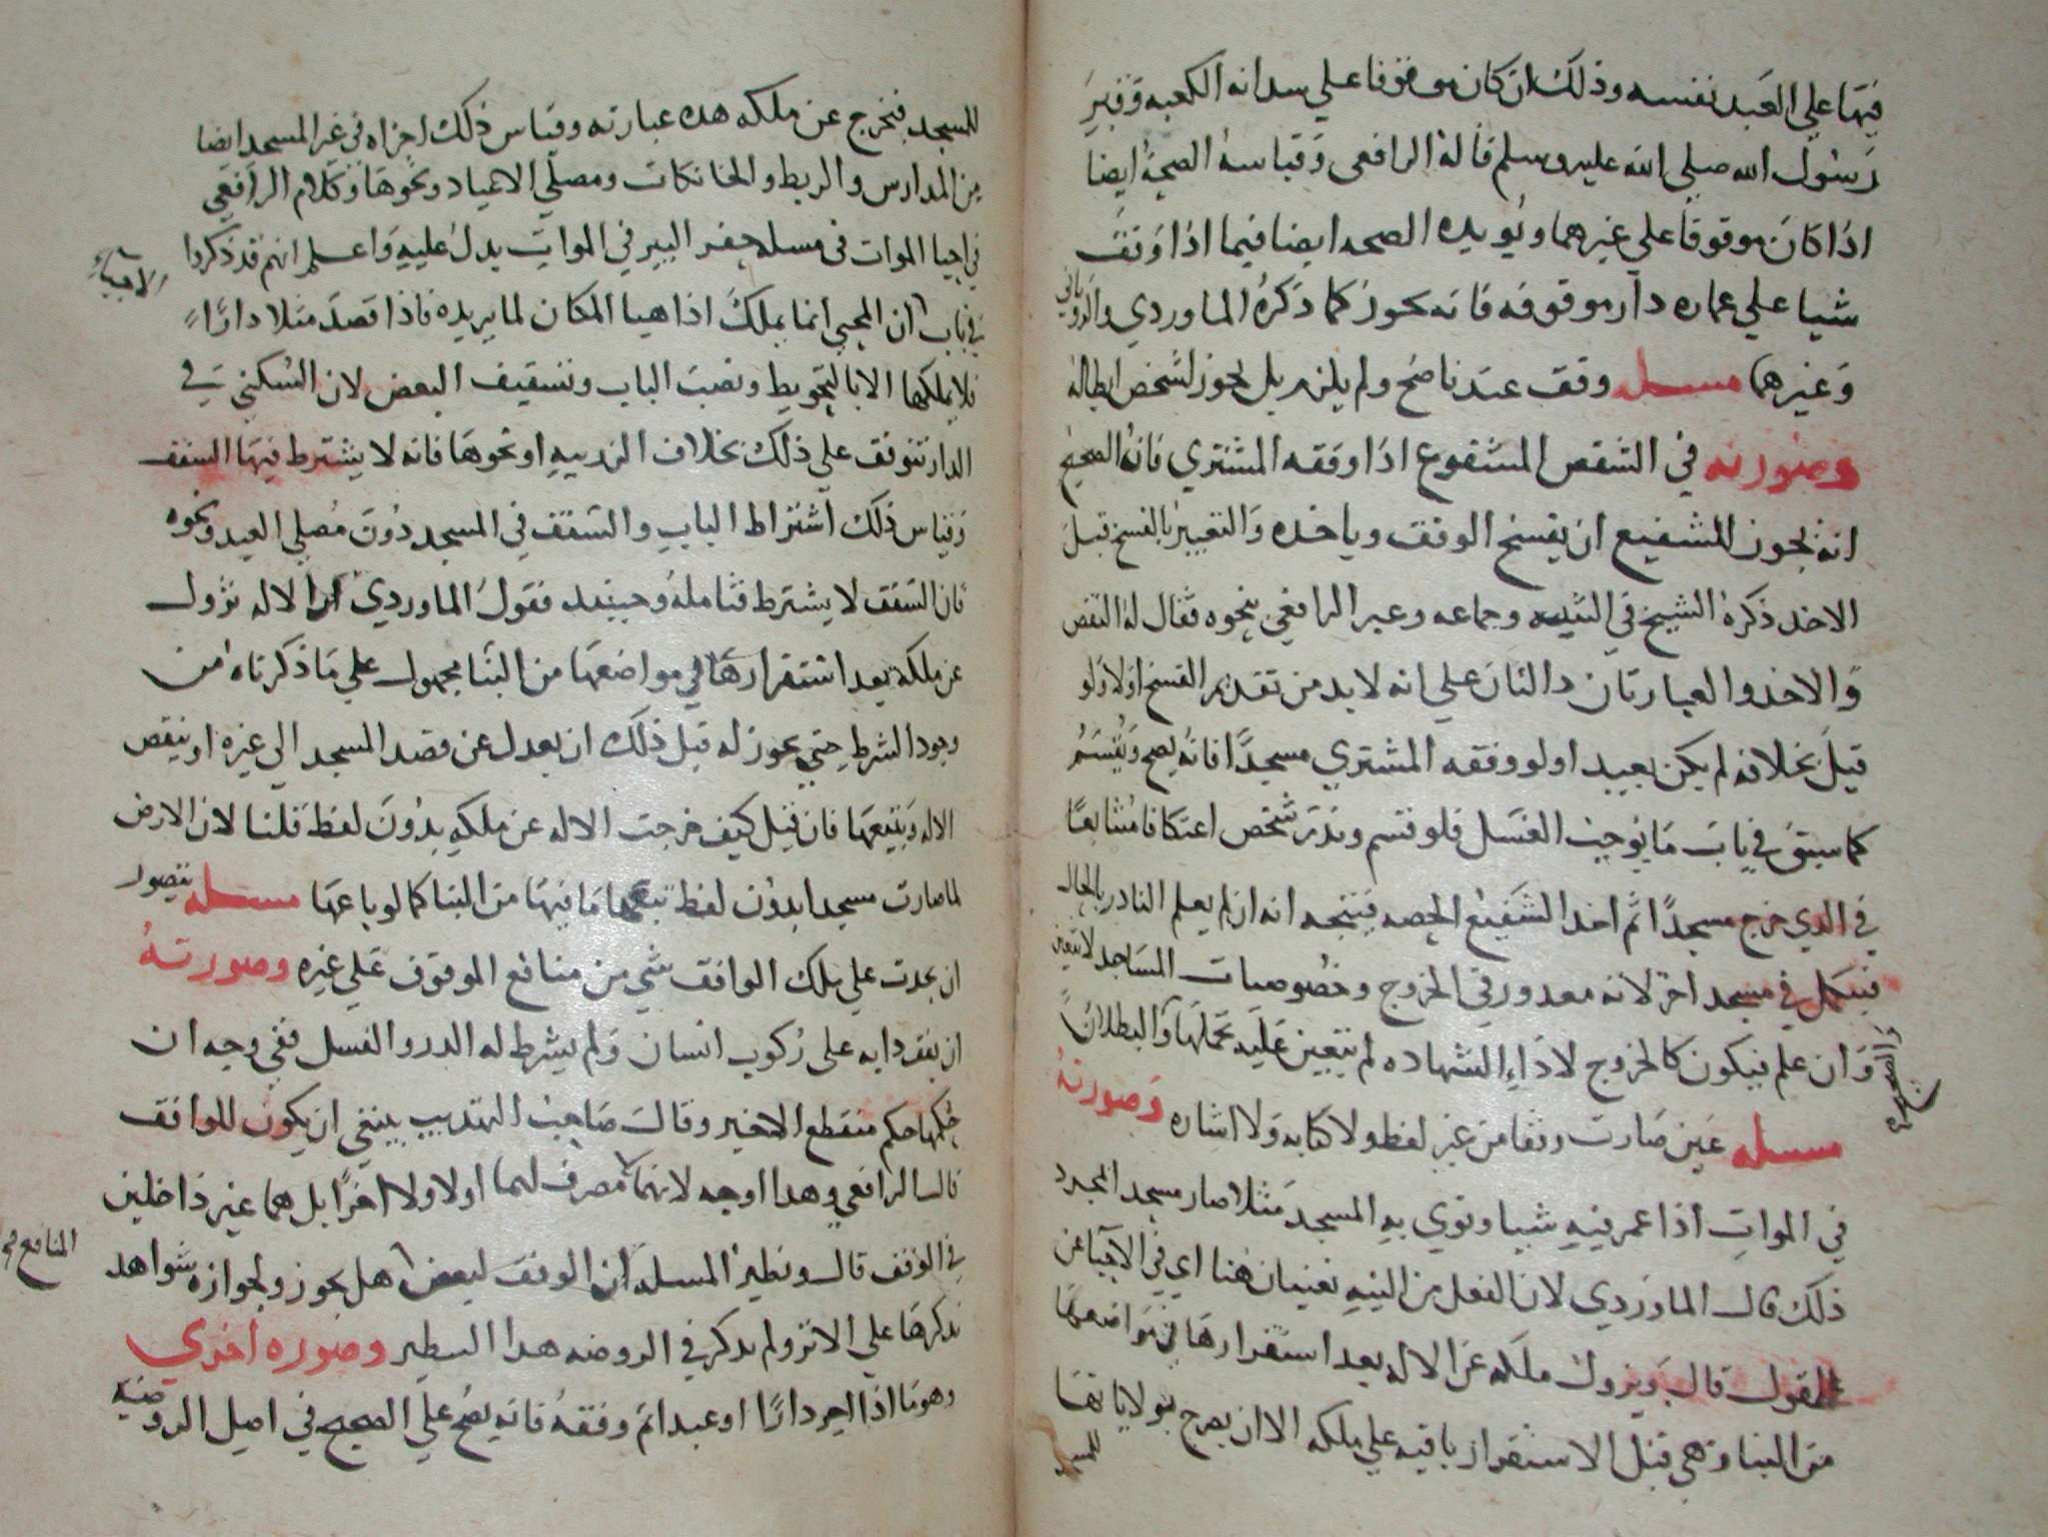 فيها علي العبد نفسه وذلك ان كان موقوفا علي سدانه الكعبه وقبر
رسول الله صلي الله عليه وسلم قاله الرافعي وقياسه الصحة ايضا
اذا كان موقوفا علي غيرهما ويويده الصحه ايضا فيما اذا وقف
شيا علي عماره دار موقوفه فانه يجوز كما ذكره الماوردي والروياني
وغيرهما مسله وقف عندنا صح ولم يلزم بل يجوز لشخص ابطاله
وصورته في الشقص المشفوع اذا وقفه المشتري فانه الصحيح
انه يجوز للشفيع ان يفسخ الوقف وياخذه والتعبير بالفسخ قبل
الاخذ ذكره الشيخ في التنبيه وجماعه وعبر الرافعي بنحوه فقال له النقض
والاخذ والعبارتان دالتان علي انه لا بد من تقديم الفسخ اولا ولو
قيل بخلافه لم يكن بعيدا ولو وقفه المشتري مسجدا فانه يصح ويقسم
كما سبق في باب ما يوجب الغسل فلو قسم ونذر شخص اعتكافا متتابعا
في الذي خرج مسجدا ثم اخذ الشفيع الحصه فيتجه انه ان لم يعلم الناذر بالحال
فيكمل في مسجد اخر لانه معذور في الخروج وخصوصيات المساجد لا تتعين
وان علم فيكون كالخروج لاداء الشهاده لم يتعين عليه تحملها والبطلان
مسله عين صارت وقفا من غير لفظ ولا كتابه ولا اشاره وصورته
في الموات اذا عمر فيه شييا ونوي به المسجد مثلا صار مسجد المجرد
ذلك قال الماوردي لان الفعل مع النيه يغنيان هنا اي في الاحيا عن
القول قال ويزول ملكه عن الاله بعد استقرارها في مواضعها
من البنا وهي قبل الاستقرار باقيه علي ملكه الا ان يصرح بقولانها
للمسجد
للمسجد فتخرج عن ملكه هذه عبارته وقياس ذلك اجزاه في غير المسجد ايضا
من المدارس والربط والخانكات ومصلي الاعياد ونحوها وكلام الرافعي
في احيا الموات في مسله حفر البير في الموات يدل عليه واعلم انهم قد ذكروا
الاحياء
في باب ان المحيي انما يملك اذا هيا المكان لما يريده فاذا قصد مثلا دارا
فلا يملكها الا بالتحويط ونصب الباب وتسقيف البعض لان السكني في
الدار تتوقف علي ذلك بخلاف الزريبه او نحوها فانه لا يشترط فيها السقف
وقياس ذلك اشتراط الباب والسقف في المسجد دون مصلي العيد ونحوه
فان السقف لا يشترط فتامله وحينئذ فقول الماوردي ان الاله تزول
عن ملكه بعد استقرارها في مواضعها من البنا مجهول علي ما ذكرناه من
وجود الشرط حتي يجوز له قبل ذلك ان يعدل عن قصد المسجد الي غيره او ينقص
الاله ويبيعها فان قيل كيف خرجت الاله عن ملكه بدون لفظ قلنا لان الارض
لما صارت مسجدا بدون لفظ تبعها ما فيها من البنا كما لو باعها مسله يتصور
ان يحدث علي ملك الواقف شي من منافع الموقوف علي غيره وصورته
ان يقف دابه علي ركوب انسان ولم يشرط له الدر والنسل ففي وجه ان
حكمها حكم منقطع الاخير وقال صاحب التهذيب ينبغي ان يكون للواقف
قال الرافعي وهذا اوجه لانهما لا مصرف لهما اولا ولا اخرا بل هما غير داخلين
في الوقف قال ونظير المسله ان الوقف لبعض هل يجوز ولجوازه شواهد
المنافع
نذكرها علي الاثر ولم يذكر في الروضه هذا النظير وصوره اخري
وهو ما اذا اجر دارا او عبدا ثم وقفه فانه يصح علي الصحيح في اصل الروضه